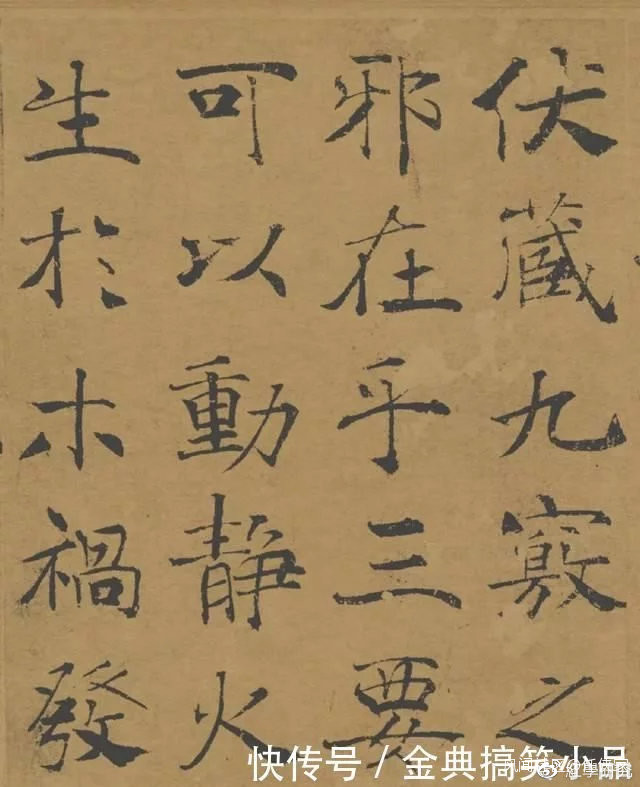 伏藏九竅之
邪在乎三要
可以動靜火
生於木禍發
快传号／金典搞笑小品